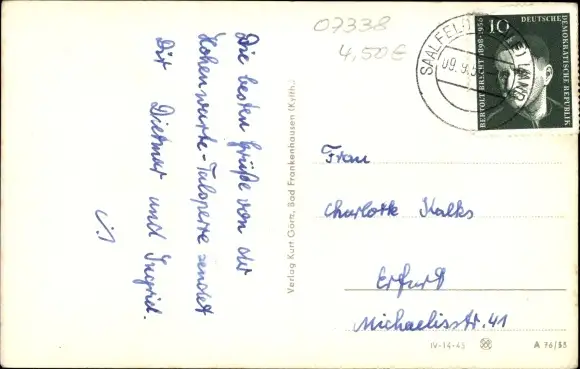 07338
4,50€
Die besten Grüße von der
Hohenwarte-Talsperre sendet
Dir Dietmar und Ingrid.
Verlag Kurt Görtz, Bad Frankenhausen (Kyffh.)
SAALFELD
LAND
09.9.5
10
DEUTSCHE
DEMOKRATISCHE REPUBLIK
BERTOLT BRECHT 1898-1956
Frau
Charlotte Kalks
Erfurt
Michaelisstr. 41
IV-14-45
A 76/55